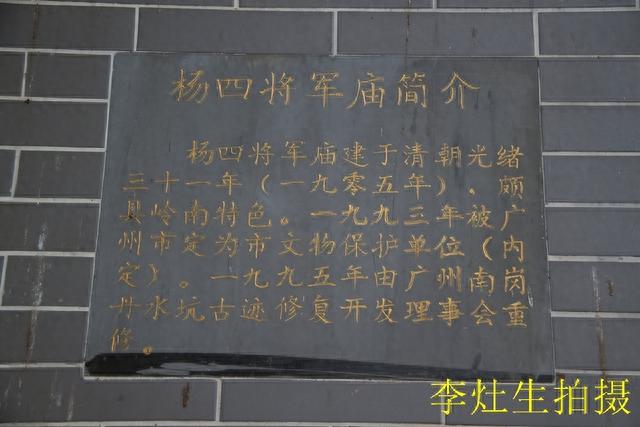 杨四将军庙简介
杨四将军庙建于清朝光绪
三十一年（一九零五年），颇
具岭南特色。一九九三年被广
州市定为市文物保护单位（内
定）。一九九五年由广州南岗
丹水坑古迹修复开发理事会重
修。
李灶生拍摄